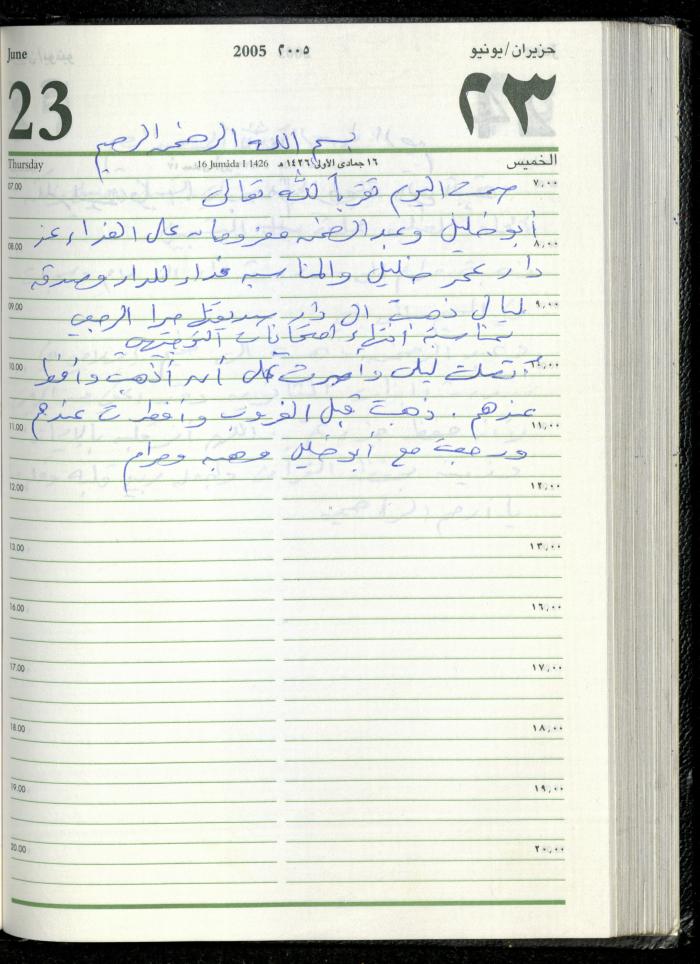 June 2005 ٢٠٠٥ حزيران/يونيو
23 ٢٣
بسم الله الرحمن الرحيم
Thursday 16 Jumâda I 1426 ١٦ جمادى الأولى ١٤٢٦ هـ الخميس
07.00 صمت اليوم تقرباً لله تعالى ٧,٠٠
أبو خليل وعبد الرحمن معزومان على الغداء عند
08.00 ٨,٠٠
دار عمر خليل والمناسبة غداء للدار وصدقة
09.00 ٩,٠٠
ليالي ذهبت الى دار
بمناسبة انتهاء امتحانات التوجيهي
10.00 اتصلت ليلى وأصرت على أن أذهب وأفطر ١٠,٠٠
عندهم . ذهبت قبل الغروب وأفطرت عندهم
11.00 ١١,٠٠
ورجعت مع أبو خليل وهبه ومرام
12.00 ١٢,٠٠
13.00 ١٣,٠٠
16.00 ١٦,٠٠
17.00 ١٧,٠٠
18.00 ١٨,٠٠
19.00 ١٩,٠٠
20.00 ٢٠,٠٠